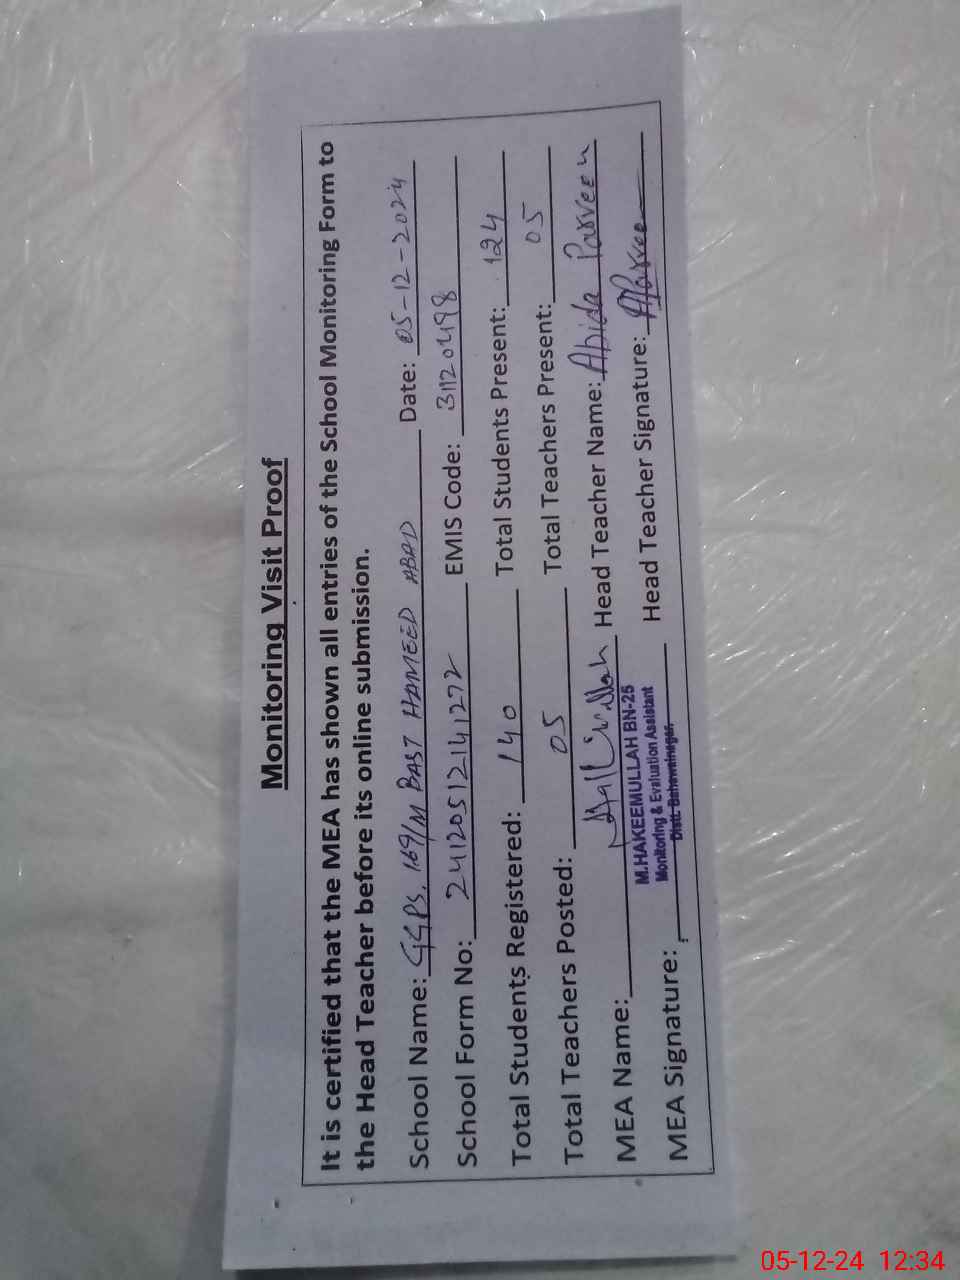 Monitoring Visit Proof
It is certified that the MEA has shown all entries of the School Monitoring Form to
the Head Teacher before its online submission.
School Name: GGPS. 169/M BAST HAMEED ABAD Date: 05-12-2024
School Form No: 24120512141272 EMIS Code: 31120498
Total Students Registered: 140 Total Students Present: 124
Total Teachers Posted: 05 Total Teachers Present: 05
MEA Name: Head Teacher Name: Abida Parveen
M.HAKEEMULLAH BN-25
Monitoring & Evaluation Assistant
Distt. Bahawalnagar.
MEA Signature: Head Teacher Signature: AParveen
05-12-24 12:34